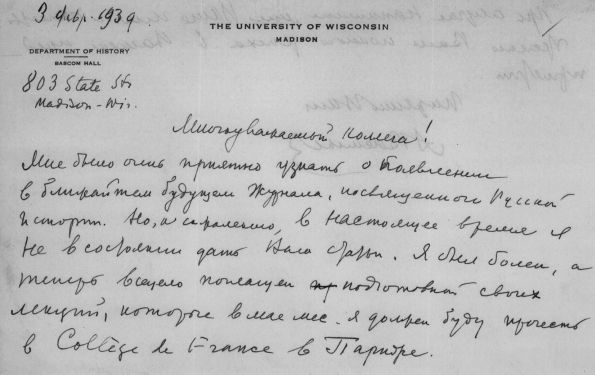 3 февр. 1939
THE UNIVERSITY OF WISCONSIN
MADISON
DEPARTMENT OF HISTORY
BASCOM HALL
803 State Str
Madison - Wis.
Многоуважаемый коллега!
Мне было очень приятно узнать о появлении
в ближайшем будущем журнала, посвященного Русской
истории. Но, к сожалению, в настоящее время я
не в состоянии дать Вам статьи. Я был болен, а
теперь всецело поглащен подготовкой своих
лекций, которые в мае мес. я должен буду прочесть
в Collège de France в Париже.